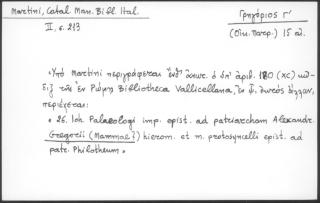 Martini, Catal. Man. Bibl. Ital.
II, σ. 213
Γρηγόριος Γ'
(Οἰκ. Πατρ.) 15 αἰ.
«Ὑπὸ Martini περιγράφεται ὁ ὑπ' ἀριθ. 180 (XC) κῶ-
διξ τῆς ἐν Ρώμῃ Bibliotheca Vallicellana, ἐν φ.
περιέχεται:
«26. Ioh. Palaeologi imp. epist. ad patriarcham Alexandr.
Gregorii (Mammae?) hierom. et m. protosyncelli epist. ad
patr. Philotheum.»